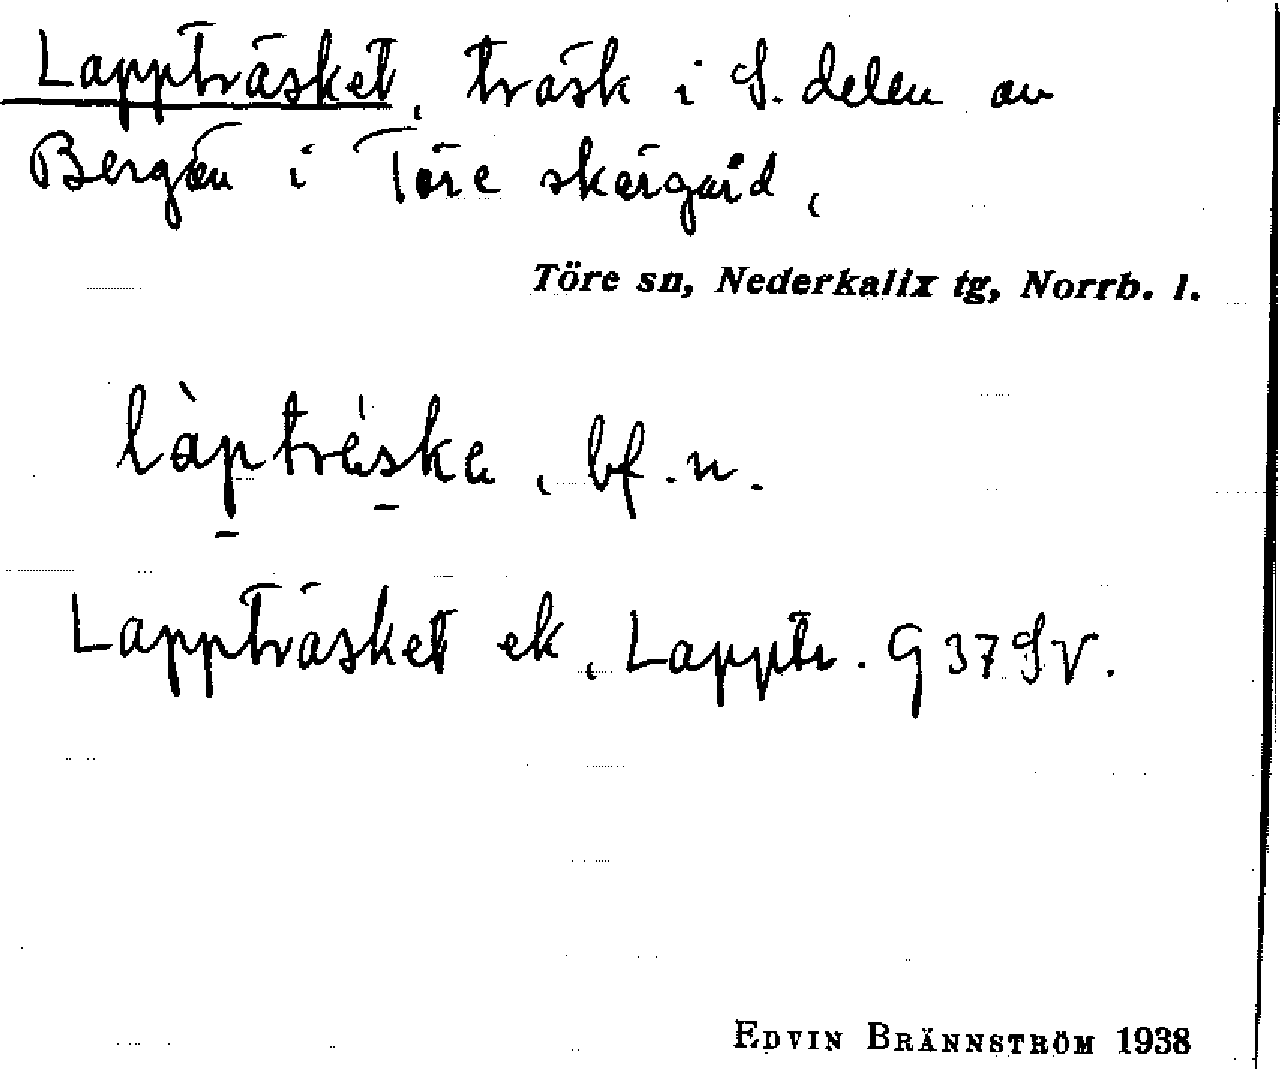 Lappträsket, träsk i S. delen av
Bergön i Töre skärgård,
Töre sn, Nederkalix tg, Norrb. l.
làptrèska, bf. n.
Lappträsket ek, Lapptr. G 37 SV.
EDVIN BRÄNNSTRÖM 1938